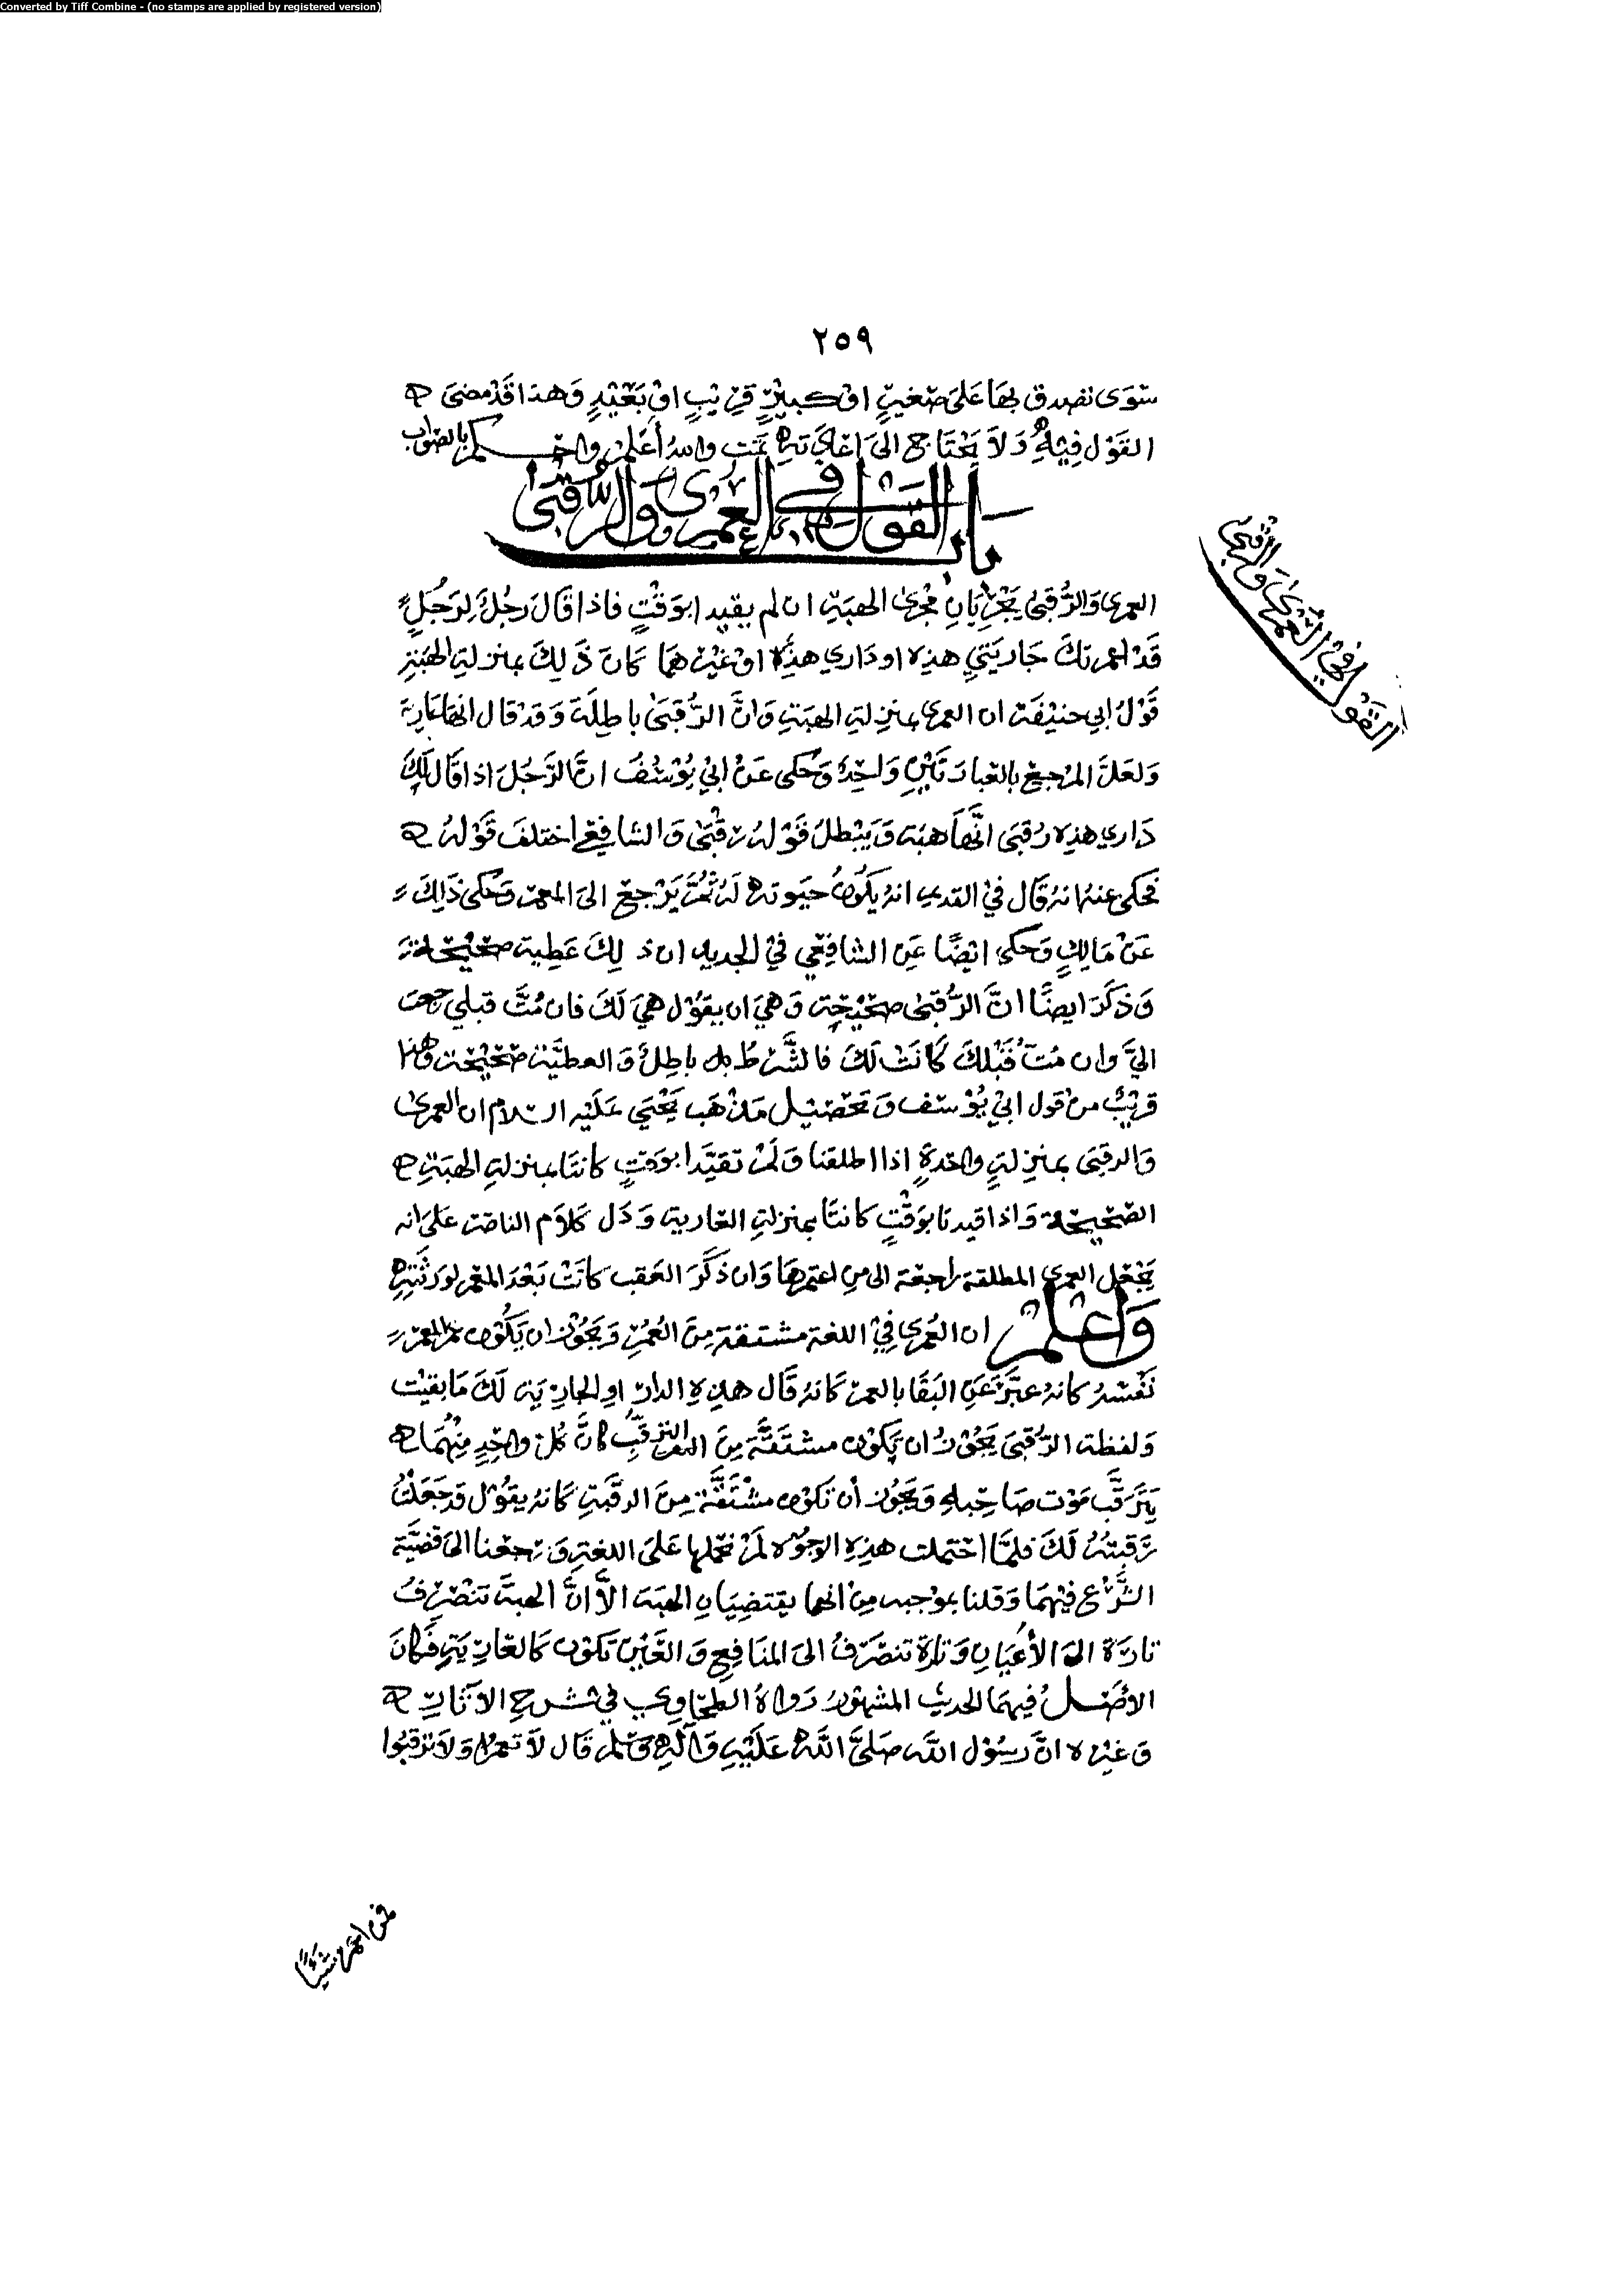 Converted by Tiff Combine - (no stamps are applied by registered version)
٢٥٩
سَوَى تصدق بِهَا عَلىَ صَغيرٍ اوْ كبيْرٍ قرِيْبٍ اوْ بَعْيْدٍ وَهذا قَدْ مضىَ
القَوْل فِيْهِ وَلاَ يَحْتَاج الىَ اعَادَته تمت واللهُ أعلم واحكم بالصَوَاب
باب القَوْل في العمرى والرقبى
القَوْل في العُمْرَى وَالرقبى
العمرى وَالرُّقبىْ يَجْريَانِ مجرى الهبَةِ ان لم يقيدا بوَقْتٍ فاذا قَالَ رجُلٌ لِرَجُلٍ
قَدْ اعمرتكَ جَاريَتيِ هذِهِ او دَاري هذِهِ اوْ غيْرهمَا كَانَ ذَلِكَ بمنزلةِ الهَبَةِ
قَوْلُ ابي حنيْفَة ان العمرى بمنزلةِ الهبَةِ وَانَّ الرُّقبىَ باطِلَة وَقد قال انها عَارية
وَلعَلَّ المرْجعْ بالعبارَتَيْنِ وَاحِدٌ وَحُكى عَنْ ابيْ يُوْسُفُ انَّ الرَّجُلَ اذا قَال لَكَ
دَاري هذِه رُقبَى انَّهَا هبَة وَيَبْطلُ قَوْلهُ رقْبىَ وَالشافِعي اختلفَ قَوْلهُ
فحكى عنهُ انهُ قَال فيْ القديم انهُ يكُونُ حيَوته لَهُ ثُمَّ يَرْجعْ الىَ المعمر وَحُكىَ ذَلِكَ
عَنْ مَالِكٍ وَحكى ايْضًا عَنِ الشافِعي فيْ الجديد ان ذلِكَ عَطِية صَحْيْحَة
وَذكَرَ ايضًا انَّ الرُّقبىْ صحْيْحَة وَهيَ ان يقوْل هيَ لَكَ فان مُتَّ قبلي رجعت
اليَّ وان مُتُّ قَبْلكَ كَانَتْ لَكَ فالشَّرطُ باطِلٌ وَالعطيَّة صَحْيْحَة وهذا
قريْبٌ من قول ابيْ يُوْسف وَتحصْيْل مَذْهَب يَحْيَى عَلَيْه السّلام ان العمرى
وَالرقبىَ بمنزِلةٍ واحدَةٍ اذا اطلقتا وَلَمْ تقيَّدا بوَقتٍ كانتَا بمنزلةِ الهبَةِ
الصّحيْحَة وَاذا قيدتا بوَقْتٍ كانتَا بمنزلةِ العَاريةِ وَدَل كَلاَم الناصر عَلىَ انه
يَجْعَل العمرى المطلقة راجعَة الى منِ اعتمرهَا وَان ذكَرَ العَقب كَانَتْ بَعْدَ المعْمر لوَرَثَتِهِ
وَاعْلمْ ان العُمرى فيْ اللغَة مشتقة مِنَ العُمْرِ وَيجُوْز ان يَكُوْن العمر
نَفْسُهُ كانهُ عبَّرَ عَنِ البَقَا بالعمر كَانهُ قَال هذِهِ الدار اوِ الجارِيَة لَكَ مَا بَقيْت
وَلفظة الرُّقبىَ يَجُوْزُ ان يكَوْن مشتَقَّة مِنَ الترقّبِ كانَّ كُل واحِدٍ مِنْهُمَا
يَترَقَّب مَوْت صَاحِبِهِ وَيجُوز أن تكوْن مشْتَقَّة مِنَ الرقَبةِ كَانهُ يقُوْل قد جَعَلْتُ
رَقبتهُ لَكَ فلمَّا احْتملت هذِهِ الوجُوْه لَمْ نحملها عَلىَ اللغَةِ وَرَجعْنا الىَ قضيَّة
الشَّرْع فيْهمَا وَقلنا بموْجبه مِنْ انهما يقتضِيَانِ الهبَة الاَّ انَّ الهبَة تنْصَرفُ
تارَة الى الأعْيَانِ وَتارَة تنصَرفُ الىَ المنَافِعِ وَالعَيْن تكوْن كَالعَارِيَةِ فَكانَ
الاصْل فيهمَا الحديث المشهوْر رَوَاهُ الطحَاوي فيْ شرحِ الآثَارِ
وَغيرْه انَّ رَسُوْل اللَّه صَلىَّ اللَّه عَلَيْهِ وَآلهِ وَسَلم قَال لاَ تعمروا وَلاَ تَرْقبُوا
فمن اعمر شَيْئاً